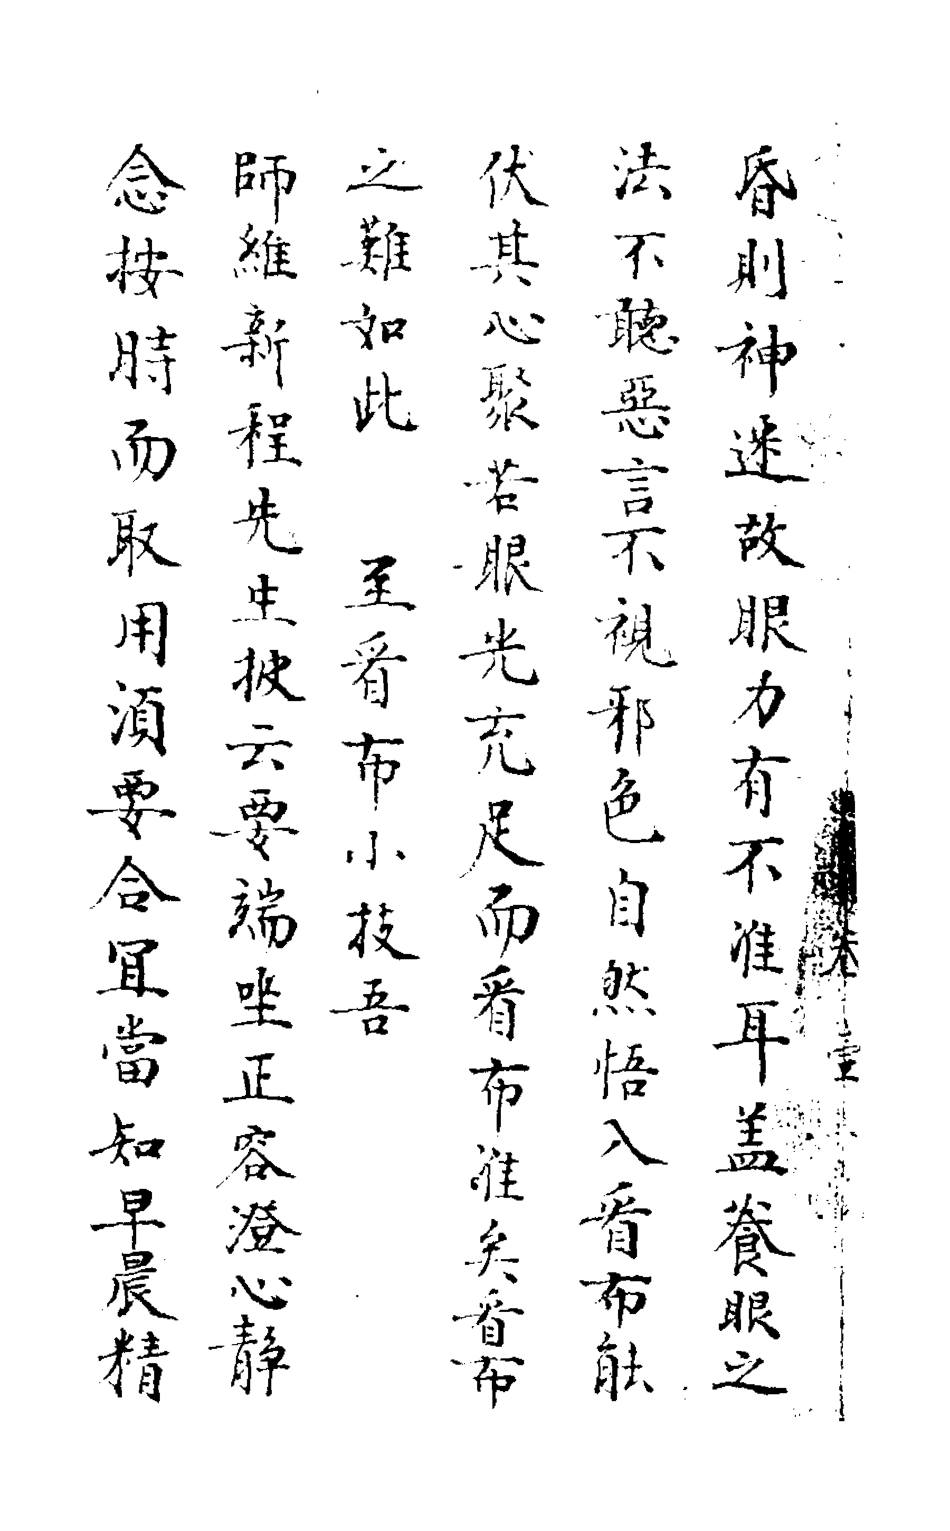 昏則神迷故眼力有不准耳盖養眼之
法不聽惡言不視邪色自然悟入看布能
伏其心聚若眼光充足而看布准矣看布
之難如此　至看布小技吾
師維新程先生披云要端坐正容澄心静
念按時而取用須要合宜當知早晨精
卷壹